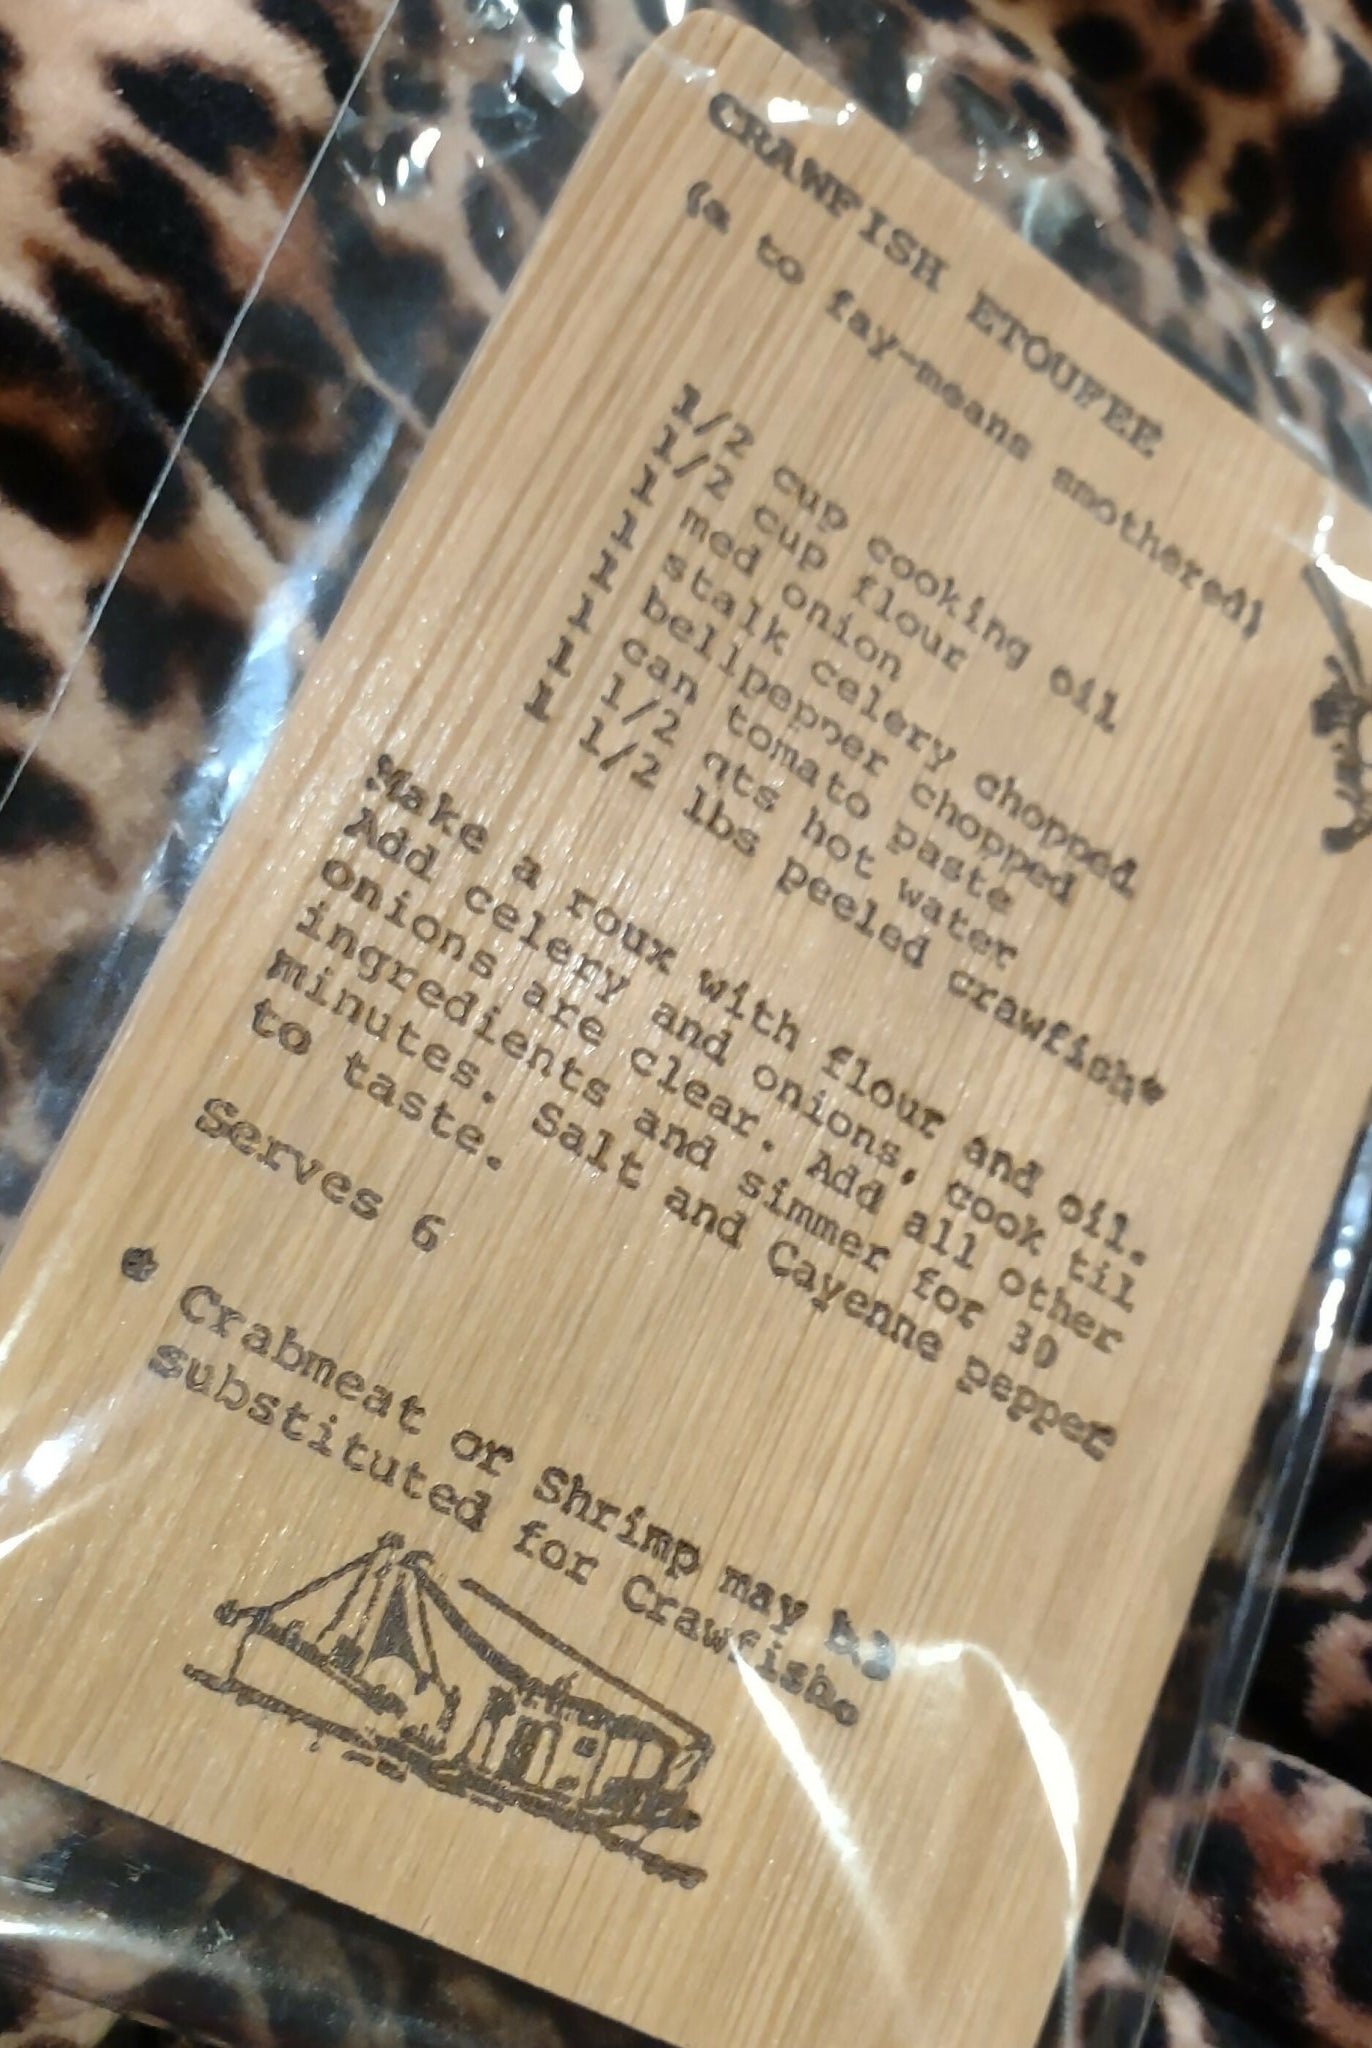 CRAWFISH ETOUFEE
(a to fay-means smothered)
1/2 cup cooking oil
1/2 cup flour
1 med onion
1 stalk celery chopped
1 bellpepper chopped
1 can tomato paste
1 1/2 qts hot water
1 1/2 lbs peeled crawfish*
Make a roux with flour and oil.
Add celery and onions, cook til
onions are clear. Add all other
ingredients and simmer for 30
minutes. Salt and Cayenne pepper
to taste.
Serves 6
* Crabmeat or Shrimp may be
substituted for Crawfish.